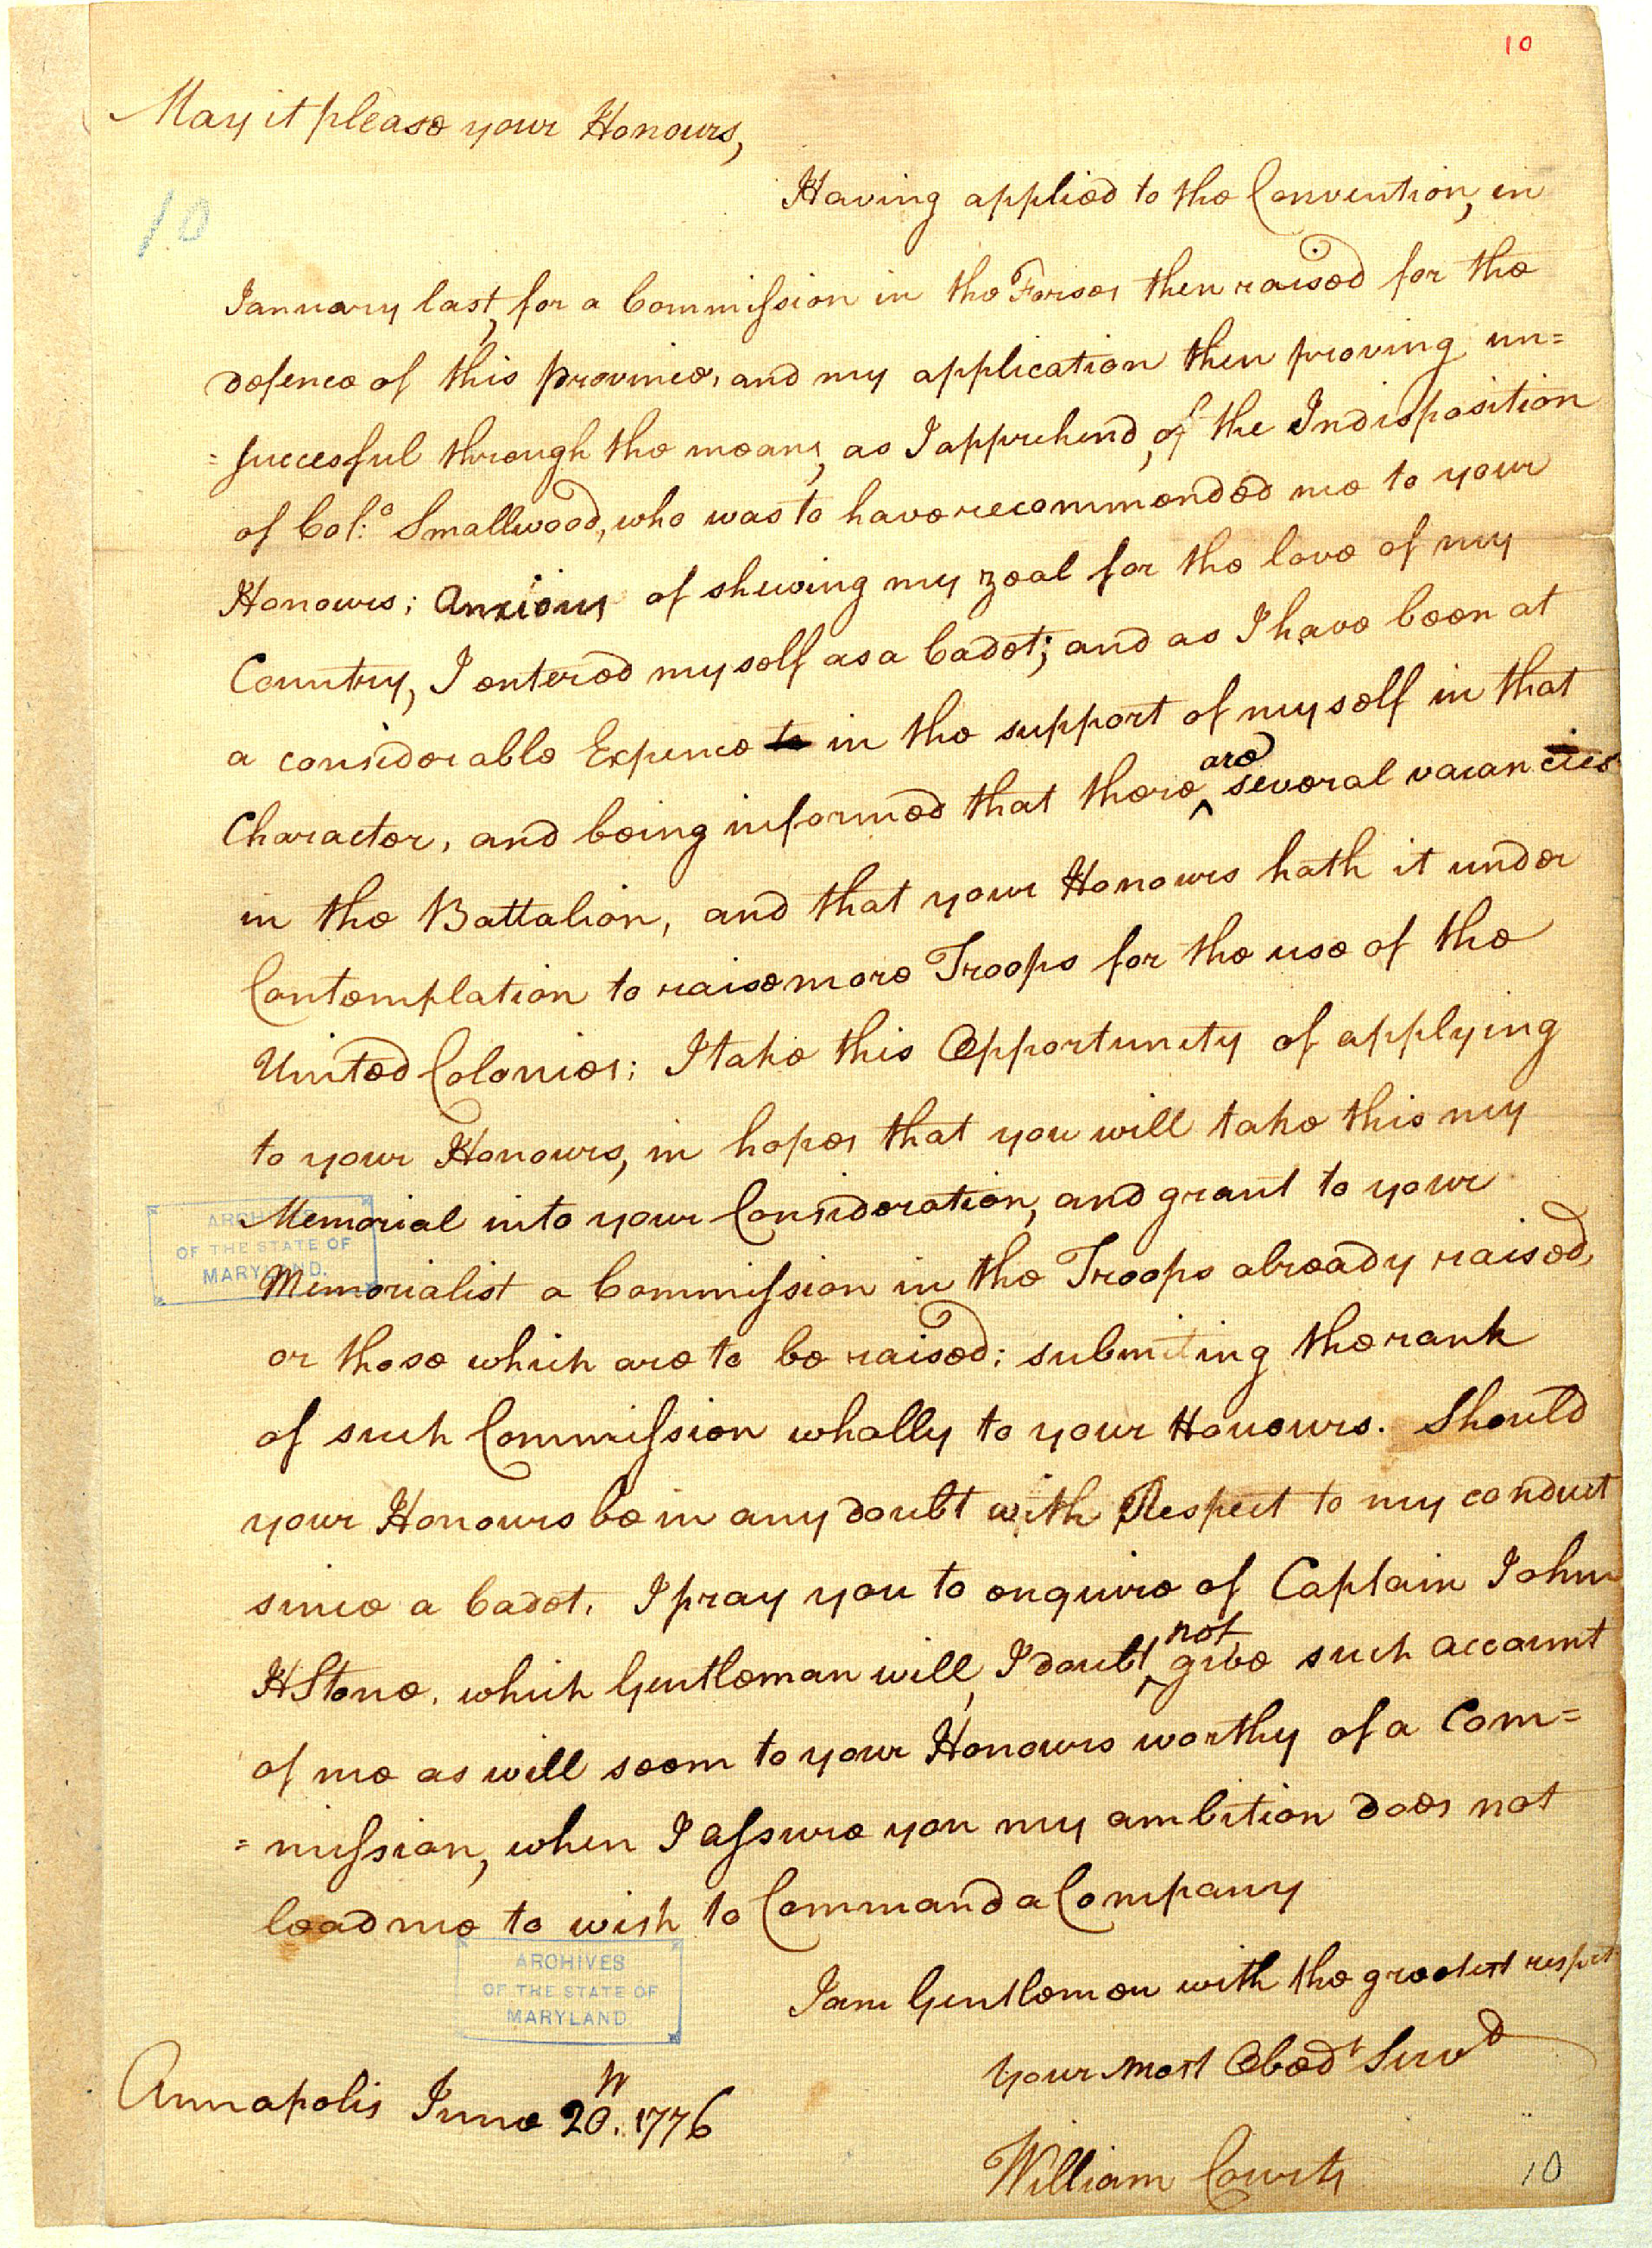 10
May it please your Honours,
10
Having applied to the Convention, in
January last, for a Commission in the Forses then raised for the
defence of this province, and my application then proving un=
=succesful through the means, as I apprehend, of the Indisposition
of Col:o Smallwood, who was to have recommended me to your
Honours; Anxious of shewing my zeal for the love of my
Country, I entered myself as a Cadet; and as I have been at
a considerable Expence to in the support of myself in that
Character, and being informed that there are several vacancies
in the Battalion, and that your Honours hath it under
Contemplation to raise more Troops for the use of the
United Colonies; I take this Opportunity of applying
to your Honours, in hopes that you will take this my
Memorial into your Consideration, and grant to your
Memorialist a Commission in the Troops already raised,
or those which are to be raised; submiting the rank
of such Commission wholly to your Honours. Should
your Honours be in any doubt with Respect to my conduct
since a Cadet, I pray you to enquire of Captain John
H Stone, which Gentleman will, I doubt not, give such account
of me as will seem to your Honours worthy of a Com=
=mission, when I assure you my ambition does not
lead me to wish to Command a Company
I am Gentlemen with the greatest respect
Your most Obedt Servd
Annapolis June 20th. 1776
William Courts
10
ARCHIVES
OF THE STATE OF
MARYLAND.
ARCHIVES
OF THE STATE OF
MARYLAND